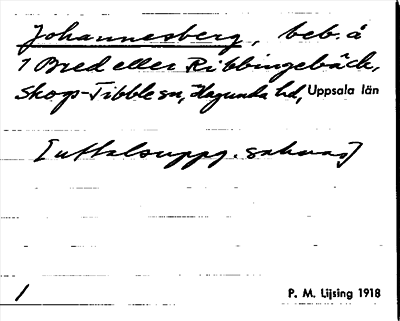 Johannesberg, beb. å
1 Bred eller Ribbingebäck,
Skogs-Tibble sn, Hagunda hd, Uppsala län
[uttalsuppg. saknas]
1
P. M. Lijsing 1918